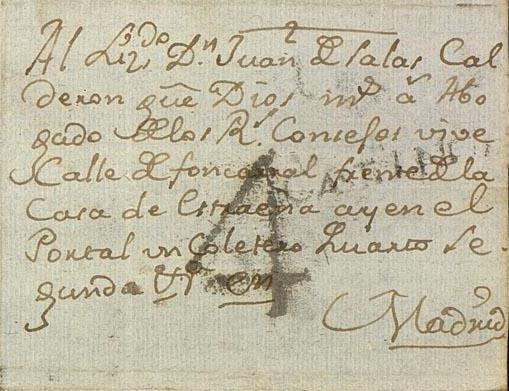 Al Liz.do D.n Juan de Salas Cal
deron que Dios m.s a.s Abo
gado de los R.s Consejos vive
Calle de foncarral frente de la
Casa de Estraena ay en el
Portal un Coletero Quarto Se
gunda
en
Madrid
4